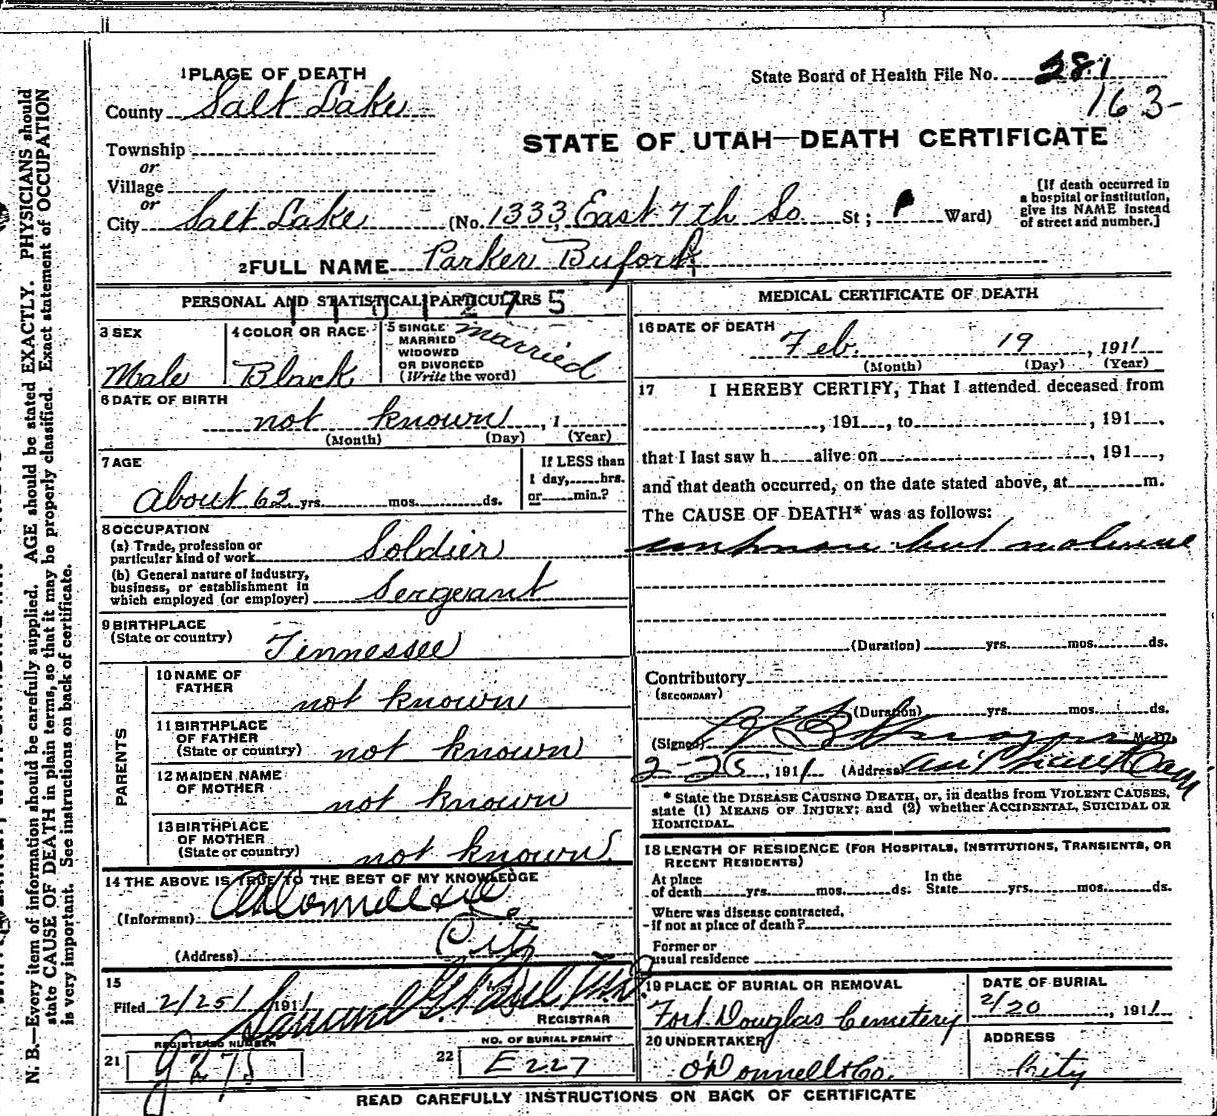 1 PLACE OF DEATH
State Board of Health File No. 281
163-
County Salt Lake
STATE OF UTAH—DEATH CERTIFICATE
Township
or
Village
or
City Salt Lake (No. 1333, East 7th So. St; Ward)
[If death occurred in
a hospital or institution,
give its NAME instead
of street and number.]
2 FULL NAME Parker Buford
PERSONAL AND STATISTICAL PARTICULARS
1101275
3 SEX
Male
4 COLOR OR RACE
Black
5 SINGLE
MARRIED
WIDOWED
OR DIVORCED
(Write the word)
married
6 DATE OF BIRTH
not known, 1
(Month) (Day) (Year)
7 AGE
about 62 yrs. mos. ds.
If LESS than
1 day, hrs.
or min.?
8 OCCUPATION
(a) Trade, profession or
particular kind of work Soldier
(b) General nature of industry,
business, or establishment in
which employed (or employer) Sergeant
9 BIRTHPLACE
(State or country) Tennessee
PARENTS
10 NAME OF
FATHER not known
11 BIRTHPLACE
OF FATHER
(State or country) not known
12 MAIDEN NAME
OF MOTHER not known
13 BIRTHPLACE
OF MOTHER
(State or country) not known.
14 THE ABOVE IS TRUE TO THE BEST OF MY KNOWLEDGE
(Informant) O'Donnell & Co
(Address) City
15
Filed 2/25/1911
REGISTRAR
21
REGISTERED NUMBER
g275
22
NO. OF BURIAL PERMIT
E227
MEDICAL CERTIFICATE OF DEATH
16 DATE OF DEATH
Feb. 19, 1911
(Month) (Day) (Year)
17 I HEREBY CERTIFY, That I attended deceased from
, 191 , to , 191 ,
that I last saw h alive on , 191 ,
and that death occurred, on the date stated above, at m.
The CAUSE OF DEATH* was as follows:
(Duration) yrs. mos. ds.
Contributory
(SECONDARY)
(Duration) yrs. mos. ds.
(Signed) M. D.
, 1911 (Address)
* State the DISEASE CAUSING DEATH, or, in deaths from VIOLENT CAUSES,
state (1) MEANS OF INJURY; and (2) whether ACCIDENTAL, SUICIDAL OR
HOMICIDAL.
18 LENGTH OF RESIDENCE (FOR HOSPITALS, INSTITUTIONS, TRANSIENTS, OR
RECENT RESIDENTS)
At place
of death yrs. mos. ds.
In the
State yrs. mos. ds.
Where was disease contracted,
if not at place of death?
Former or
usual residence
19 PLACE OF BURIAL OR REMOVAL
Fort Douglas Cemetery
DATE OF BURIAL
2/20, 1911
20 UNDERTAKER
O'Donnell & Co.
ADDRESS
City
READ CAREFULLY INSTRUCTIONS ON BACK OF CERTIFICATE
N. B.—Every item of information should be carefully supplied. AGE should be stated EXACTLY. PHYSICIANS should
state CAUSE OF DEATH in plain terms, so that it may be properly classified. Exact statement of OCCUPATION
is very important. See instructions on back of certificate.